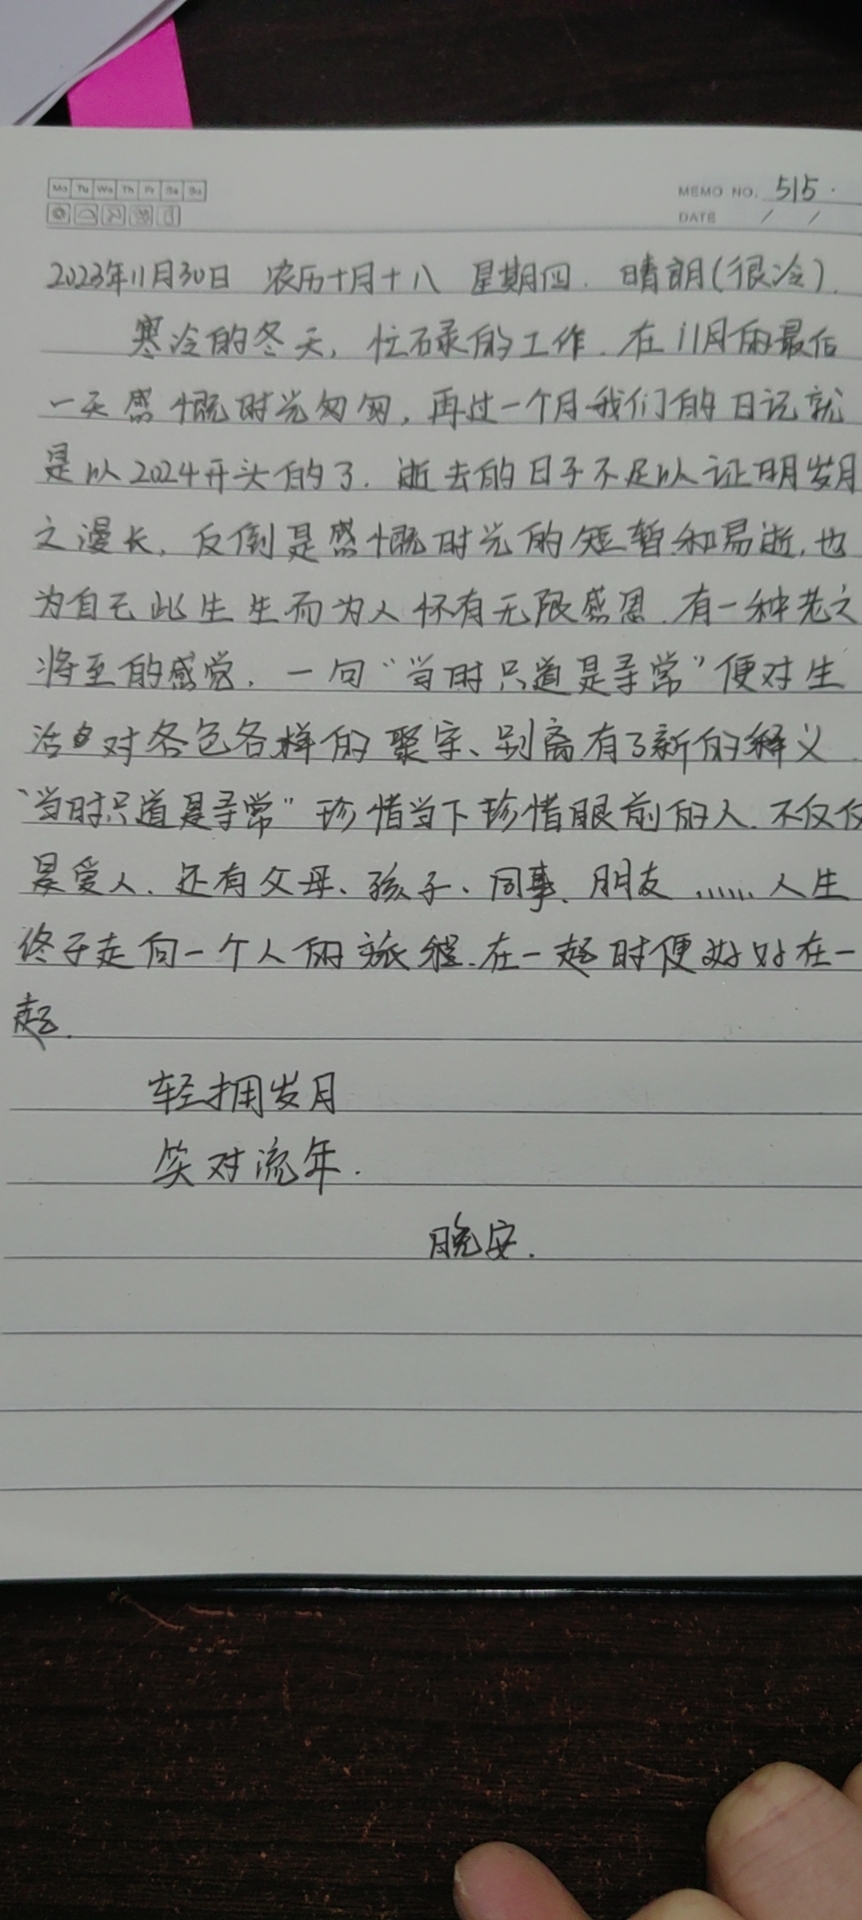 Mo Tu We Th Fr Sa Su
MEMO NO. 515.
DATE / /
2023年11月30日 农历十月十八 星期四. 晴朗(很冷).
寒冷的冬天, 忙碌的工作. 在11月的最后
一天感慨时光匆匆, 再过一个月我们的日记就
是以2024开头的了. 逝去的日子不足以证明岁月
之漫长, 反倒是感慨时光的短暂和易逝, 也
为自己此生生而为人怀有无限感恩. 有一种老之
将至的感觉. 一句“当时只道是寻常”便对生
活 对各色各样的聚字、别离有了新的释义.
“当时只道是寻常”珍惜当下珍惜眼前的人. 不仅仅
是爱人. 还有父母、孩子、同事、朋友 ...... 人生
终于走向一个人的旅程. 在一起时便好好在一
起.
轻拥岁月
笑对流年.
晚安.